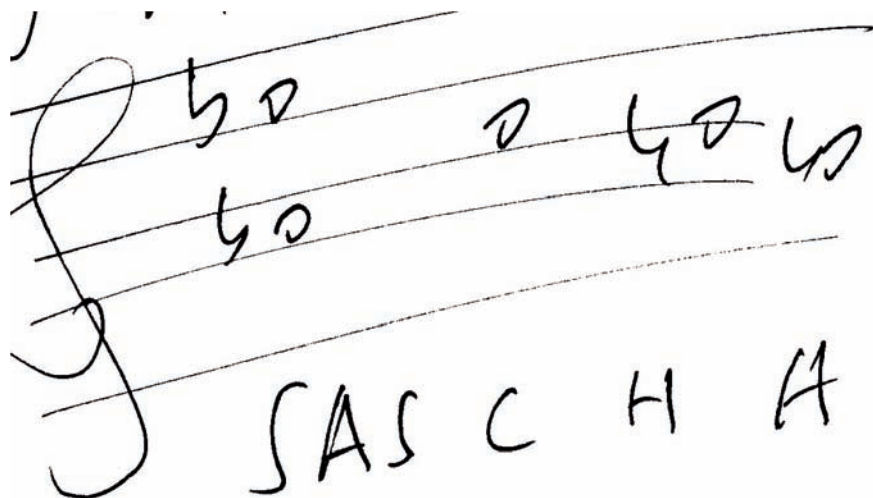 SAS C H A